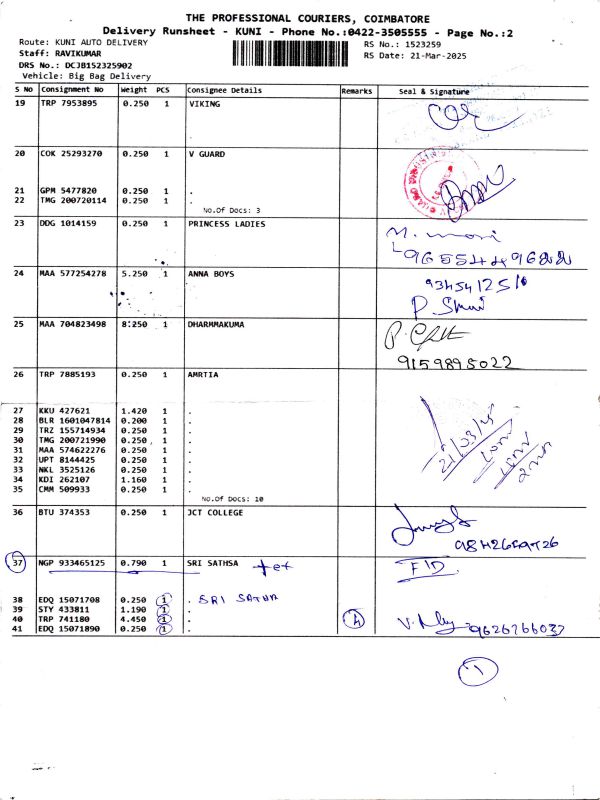 THE PROFESSIONAL COURIERS, COIMBATORE
Delivery Runsheet - KUNI - Phone No.:0422-3505555 - Page No.:2
Route: KUNI AUTO DELIVERY
RS No.: 1523259
Staff: RAVIKUMAR
RS Date: 21-Mar-2025
DRS No.: DCJB152325902
Vehicle: Big Bag Delivery
S No Consignment No Weight PCS Consignee Details Remarks Seal & Signature
19 TRP 7953895 0.250 1 VIKING
20 COK 25293270 0.250 1 V GUARD
21 GPM 5477820 0.250 1 .
22 TMG 200720114 0.250 1 .
No.Of Docs: 3
23 DDG 1014159 0.250 1 PRINCESS LADIES
24 MAA 577254278 5.250 1 ANNA BOYS
25 MAA 704823498 8.250 1 DHARMMAKUMA
9159895022
26 TRP 7885193 0.250 1 AMRTIA
27 KKU 427621 1.420 1 .
28 BLR 1601047814 0.200 1 .
29 TRZ 155714934 0.250 1 .
30 TMG 200721990 0.250 1 .
31 MAA 574622276 0.250 1 .
32 UPT 8144425 0.250 1 .
33 NKL 3525126 0.250 1 .
34 KDI 262107 1.160 1 .
35 CMM 509933 0.250 1 .
No.Of Docs: 10
21/03/25
36 BTU 374353 0.250 1 JCT COLLEGE
37 NGP 933465125 0.790 1 SRI SATHSA
38 EDQ 15071708 0.250 1 .
39 STY 433811 1.190 1 .
40 TRP 741180 4.450 1 .
41 EDQ 15071890 0.250 1 .
9626766037
1